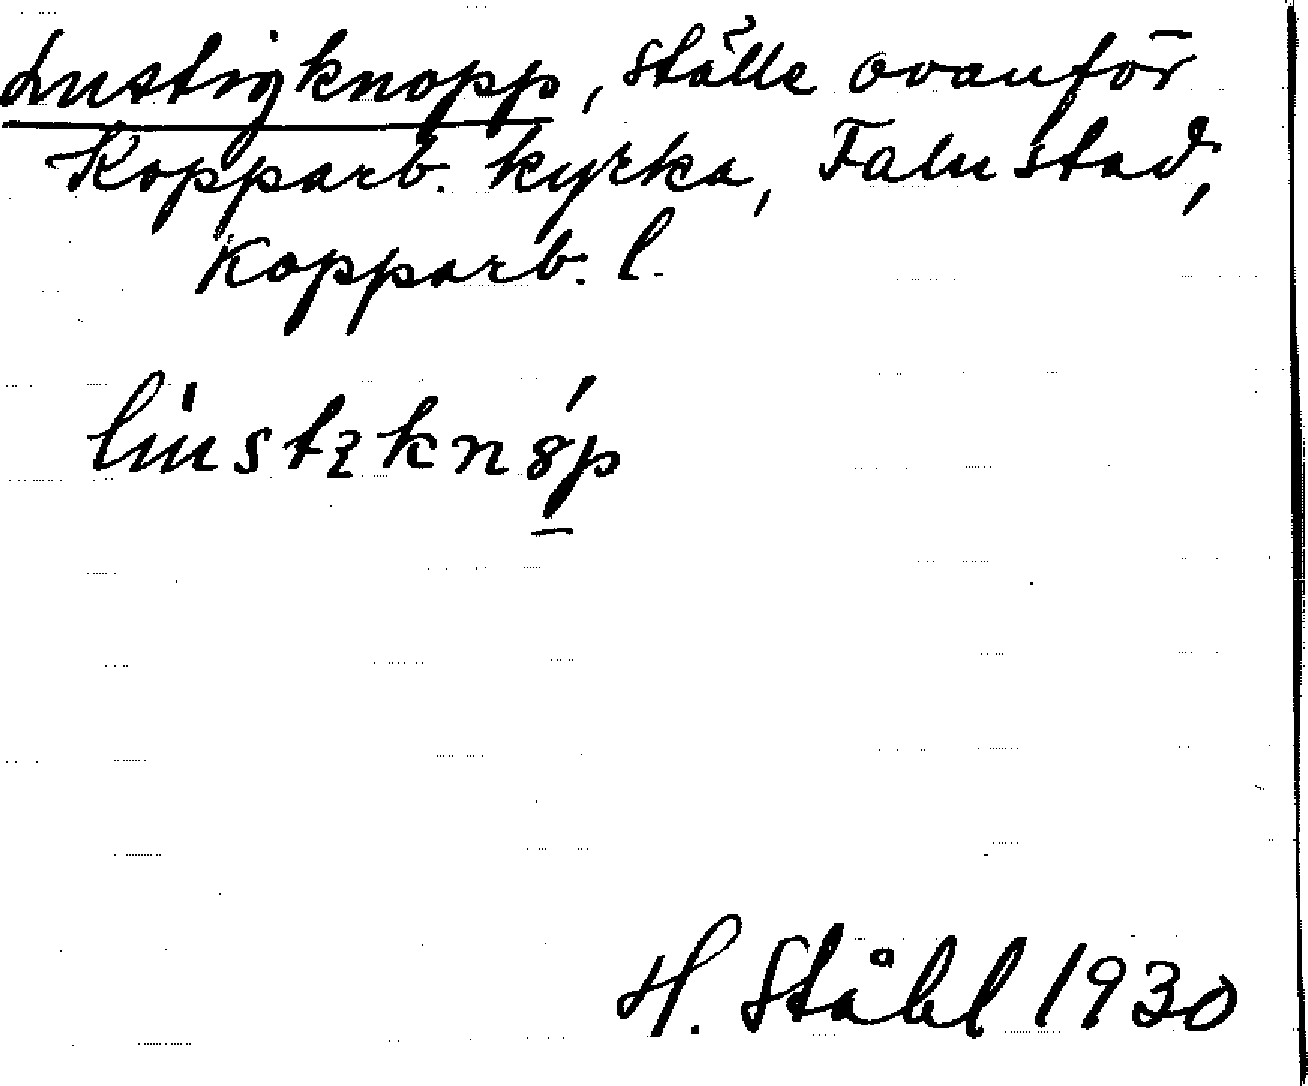 Lustigknopp, ställe ovanför
Kopparb. kyrka, Falu stad,
Kopparb. l.
H. Ståhl 1930